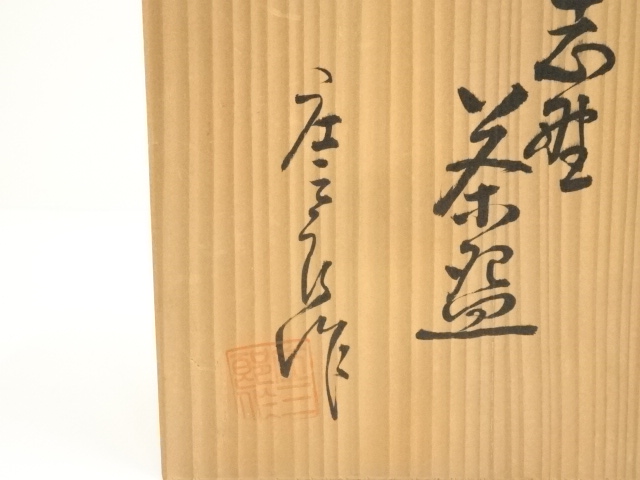 志野
茶盌
庄三郎作